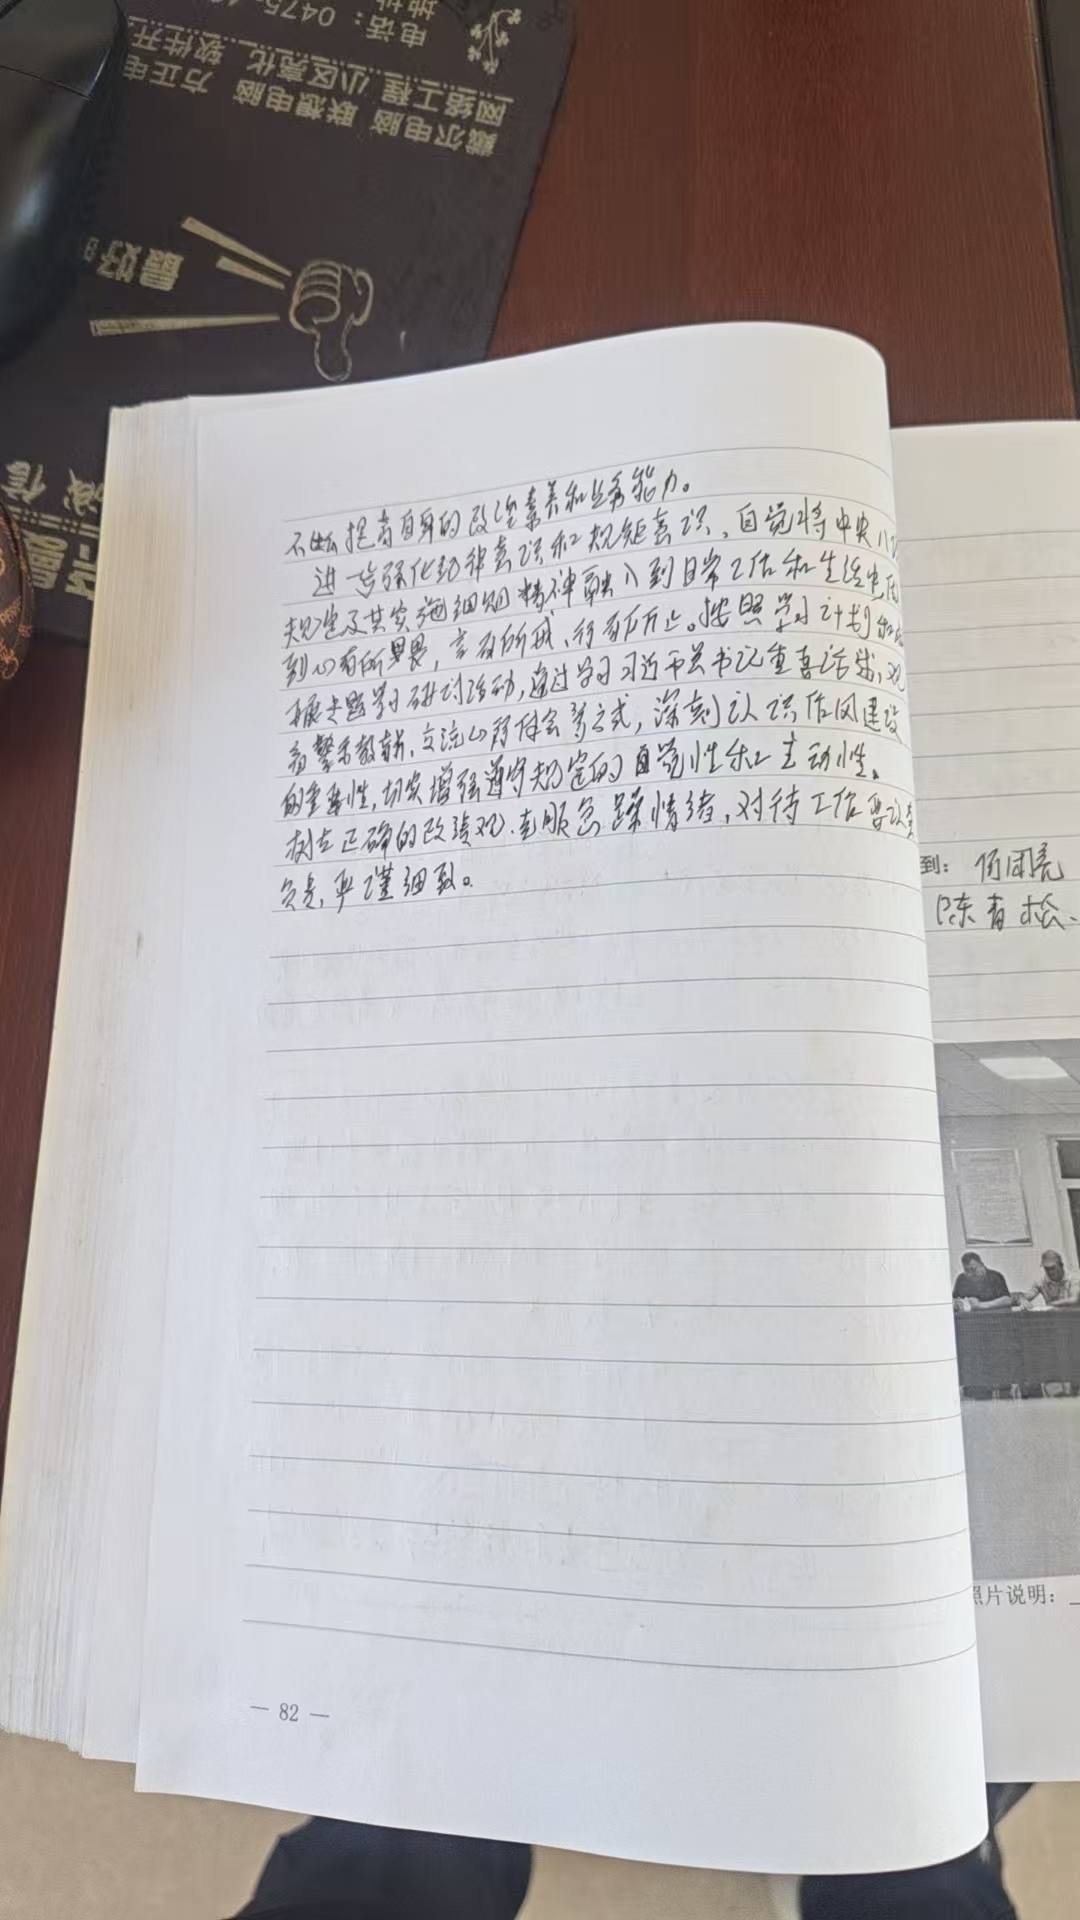 电话：0475-
地址
网络工程 小区亮化 软件开
戴尔电脑 联想电脑 方正电
最好
诚信
不断提高自身的政治素养和业务能力。
进一步强化纪律意识和规矩意识，自觉将中央八项
规定及其实施细则精神融入到日常工作和生活中，做
到心有所畏，言有所戒，行有所止。按照学习计划和
开展专题学习研讨活动，通过学习习近平总书记重要讲话，观
看警示教育、交流心得体会等方式，深刻认识作风建设
的重要性，切实增强遵守规定的自觉性和主动性。
树立正确的政绩观，克服急躁情绪，对待工作要认真
负责，严谨细致。
— 82 —
到：
陈青松、
照片说明：